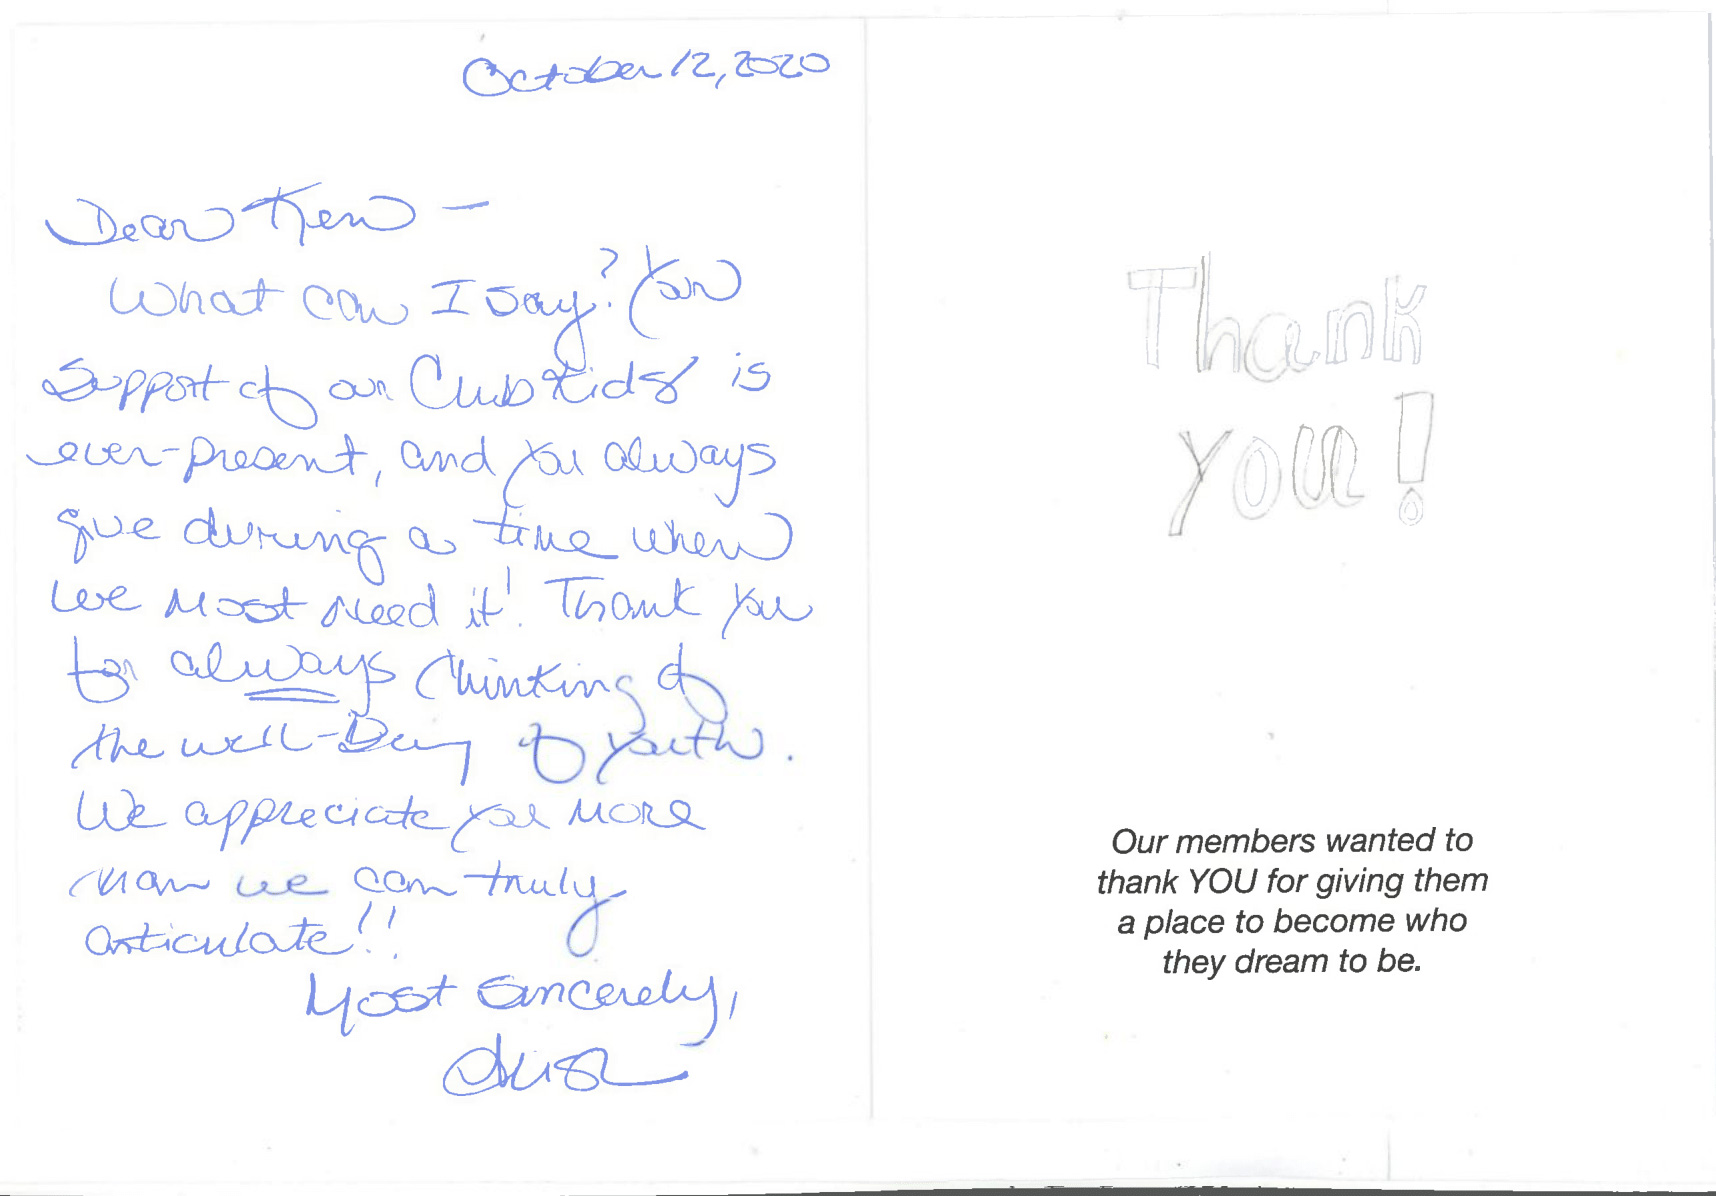 October 12, 2020
Dear Ken —
What can I say? Your
support of our Club Kids is
ever-present, and you always
give during a time when
we most need it! Thank you
for always thinking of
the well-Being of youth.
We appreciate you more
than we can truly
articulate!!
Most sincerely,
Thank
you!
Our members wanted to
thank YOU for giving them
a place to become who
they dream to be.